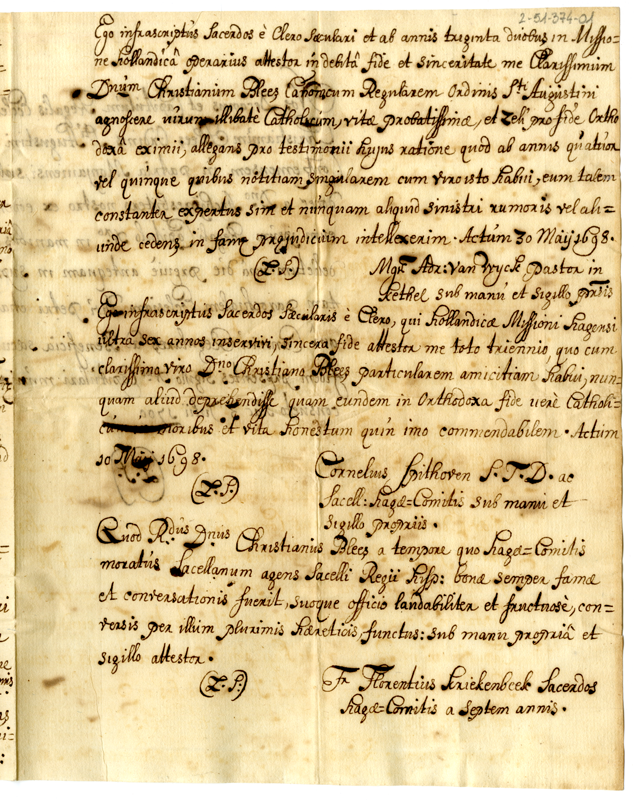 2-51-374-01
Ego infrascriptus Sacerdos è Clero Sæculari et ab annis triginta duobus in Missio=
ne Hollandicâ operarius attestor in debitâ fide et sinceritate me Clarissimum
Dnum Christianum Blees Canonicum Regularem Ordinis Sti Augustini
agnoscere virum illibatè Catholicum, vitæ probatissimæ, et Zeli pro fide Ortho
doxâ eximii, allegans pro testimonii hujus ratione quod ab annis quatuor
vel quinque quibus notitiam singularem cum viro isto habui, eum talem
constanter expertus sim et nunquam aliquid sinistri rumoris vel ali=
unde cedens in famæ præjudicium intellexerim. Actum 30 Maij 1698.
(L.S.)
Mgr Adr: van Wyck Pastor in
Kethel sub manu et sigillo prŝis
Ego infrascriptus Sacerdos Sæcularis è Clero, qui Hollandicæ Missioni Hagensi
ultra sex annos inservivi, sincera fide attestor me toto triennio quo cum
clarissimo viro Dno Christiano Blees particularem amicitiam habui, nun=
quam aliud deprehendisse quam eundem in Orthodoxa fide verè Catholi-
cum moribus et vita honestum quin imo commendabilem. Actum
10 Maij 1698.
(L.S.)
Cornelius Hithoven S.T.D. ac
Sacell: Hagæ=Comitis sub manu et
Sigillo propriis.
Quod Rdus Dnus Christianus Blees a tempore quo Hagæ=Comitis
moratus Sacellanum agens Sacelli Regii Hisp: bonæ semper famæ
et conversationis fuerit, suoque officio laudabiliter et fructuosè, con=
versis per illum plurimis hæreticis, functus: sub manu propriâ et
sigillo attestor.
(L.S.)
Fr Florentius Kriekenbeek Sacerdos
Hagæ=Comitis a septem annis.